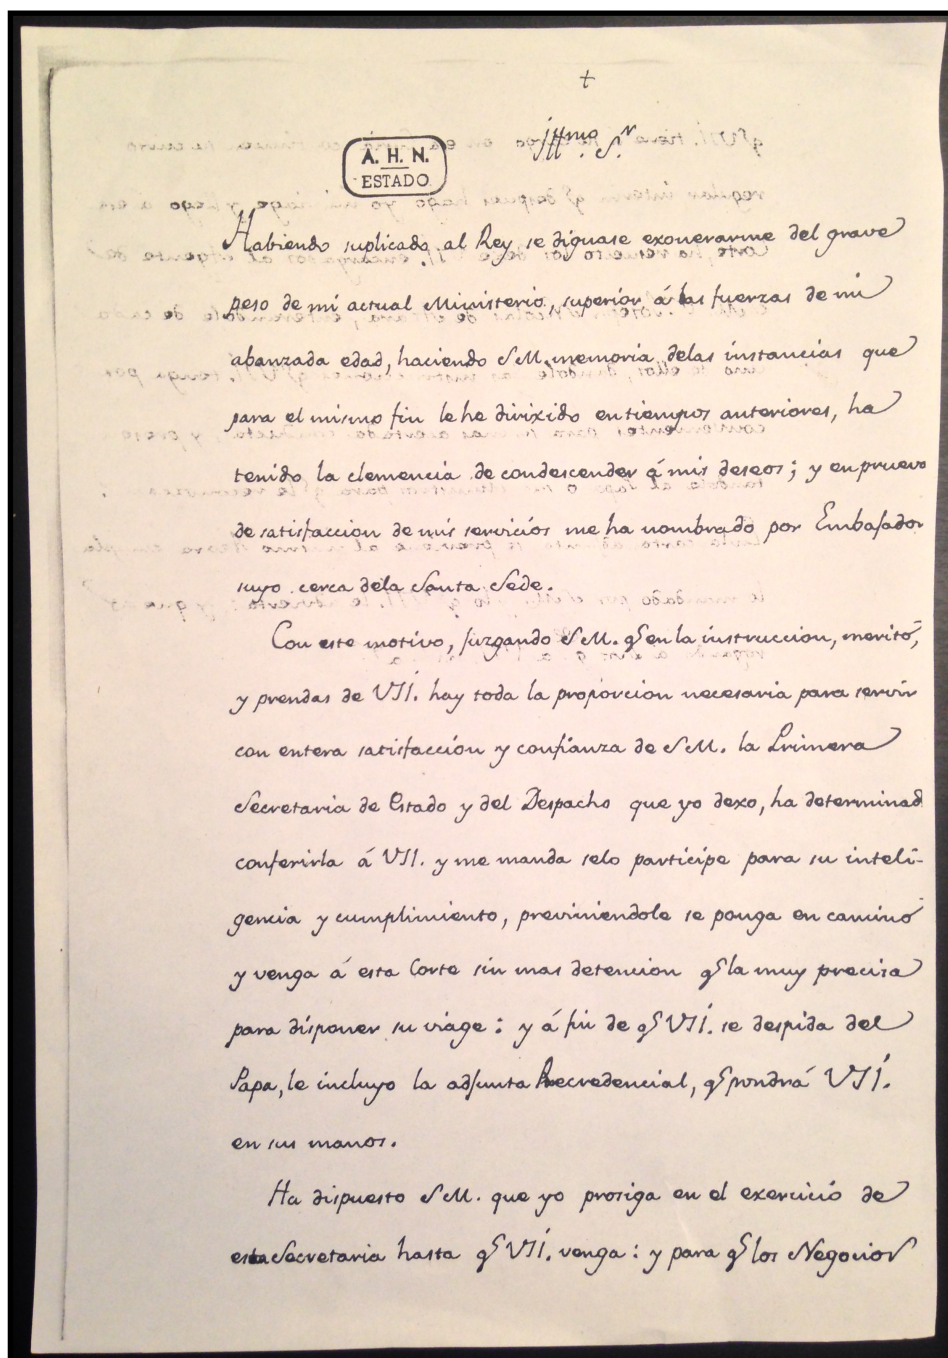 +
Illmo. Sr.
A. H. N.
ESTADO
Habiendo suplicado al Rey se dignase exonerarme del grave
peso de mi actual Ministerio, superior á las fuerzas de mi
abanzada edad, haciendo S.M. memoria delas instancias que
para el mismo fin le he dirixido en tiempos anteriores, ha
tenido la clemencia de condescender á mis deseos; y en prueva
de satisfaccion de mis servicios me ha nombrado por Embajador
suyo cerca dela Santa Sede.
Con este motivo, juzgando S.M. qe en la instruccion, merito,
y prendas de VSI. hay toda la proporcion necesaria para servir
con entera satisfaccion y confianza de S.M. la Primera
Secretaria de Estado y del Despacho que yo dexo, ha determinad
conferirla á VSI. y me manda selo participe para su inteli-
gencia y cumplimiento, previniendole se ponga en camino
y venga á esta Corte sin mas detencion qe la muy precisa
para disponer su viage: y á fin de qe VSI. se despida del
Papa, le incluyo la adjunta Recredencial, qe pondrá VSI.
en sus manos.
Ha dispuesto S.M. que yo prosiga en el exercicio de
esta Secretaria hasta qe VSI. venga: y para qe los Negocios